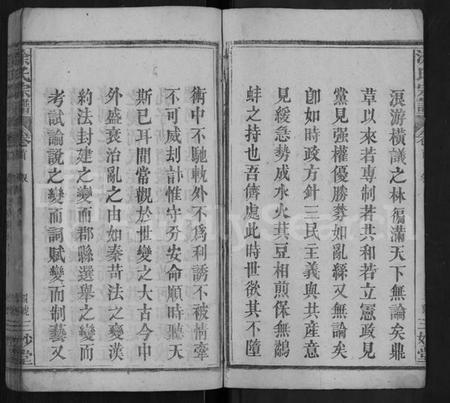 淚游橫議之林徧滿天下無論矣鼎
草以來若專制若共和若立憲政見
黨見强權優勝勢如亂絲又無論矣
卽如時政方針三民主義與共產意
見緩急勢成水火萁豆相煎保無鷸
蚌之持也吾儕處此時世欲其不墮
術中不馳軼外不爲利誘不被情牽
不可威刦計惟守分安命順時聽天
斯已耳間常觀於世變之大古今中
外盛衰治亂之由如秦苛法之變漢
約法封建之變而郡縣選舉之變而
考試論說之變而詞賦變而制藝又
氏宗譜
卷首
三妙堂